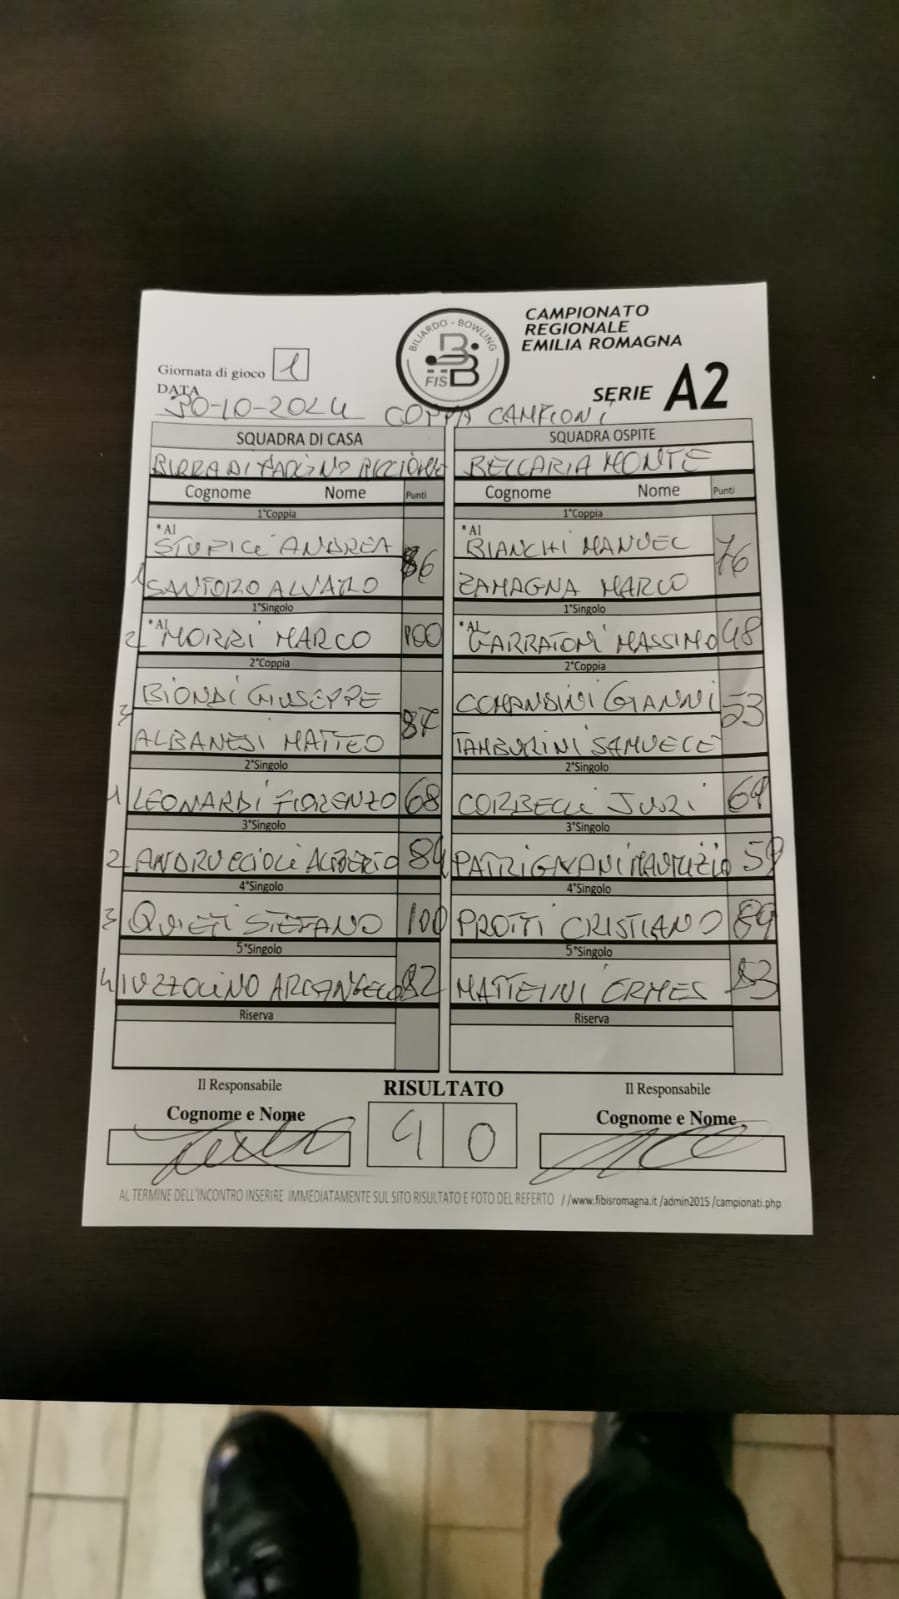 BILIARDO - BOWLING
FISBB
CAMPIONATO
REGIONALE
EMILIA ROMAGNA
SERIE A2
Giornata di gioco 1
DATA
30-10-2024 COPPA CAMPIONI
SQUADRA DI CASA SQUADRA OSPITE
RICCIONE BELLARIA MONTE
Cognome Nome Punti Cognome Nome Punti
1°Coppia 1°Coppia
*AI *AI
STUPICI ANDREA 86 BIANCHI MANUEL 76
1 SANTORO ALVARO ZAMAGNA MARCO
1°Singolo 1°Singolo
2 *AI MORRI MARCO 100 *AI GARRATONI MASSIMO 48
2°Coppia 2°Coppia
3 BIONDI GIUSEPPE 87 COMANDINI GIANNI 53
ALBANESI MATTEO TAMBURINI SAMUELE
2°Singolo 2°Singolo
1 LEONARDI FIORENZO 68 CORBELLI JURI 64
3°Singolo 3°Singolo
2 ANDRUCCIOLI ALBERTO 84 PATRIGNANI MAURIZIO 59
4°Singolo 4°Singolo
3 QUIETI STEFANO 100 PROTTI CRISTIANO 89
5°Singolo 5°Singolo
4 IUZZOLINO ARCANGELO 82 MATTEINI ERMES 53
Riserva Riserva
Il Responsabile RISULTATO Il Responsabile
Cognome e Nome Cognome e Nome
4 0
AL TERMINE DELL'INCONTRO INSERIRE IMMEDIATAMENTE SUL SITO RISULTATO E FOTO DEL REFERTO //www.fibisromagna.it /admin2015 /campionati.php